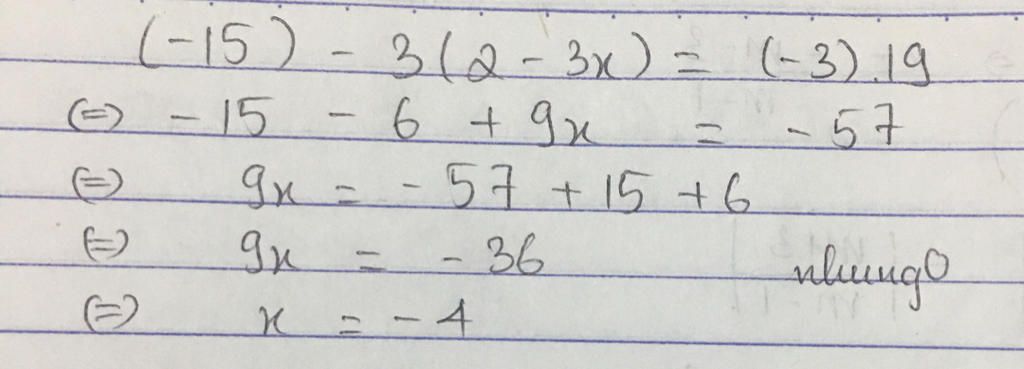 (-15) - 3(2 - 3x) = (-3).19
(=) -15 - 6 + 9x = -57
(=) 9x = -57 + 15 + 6
(=) 9x = -36 nhung0
(=) x = -4